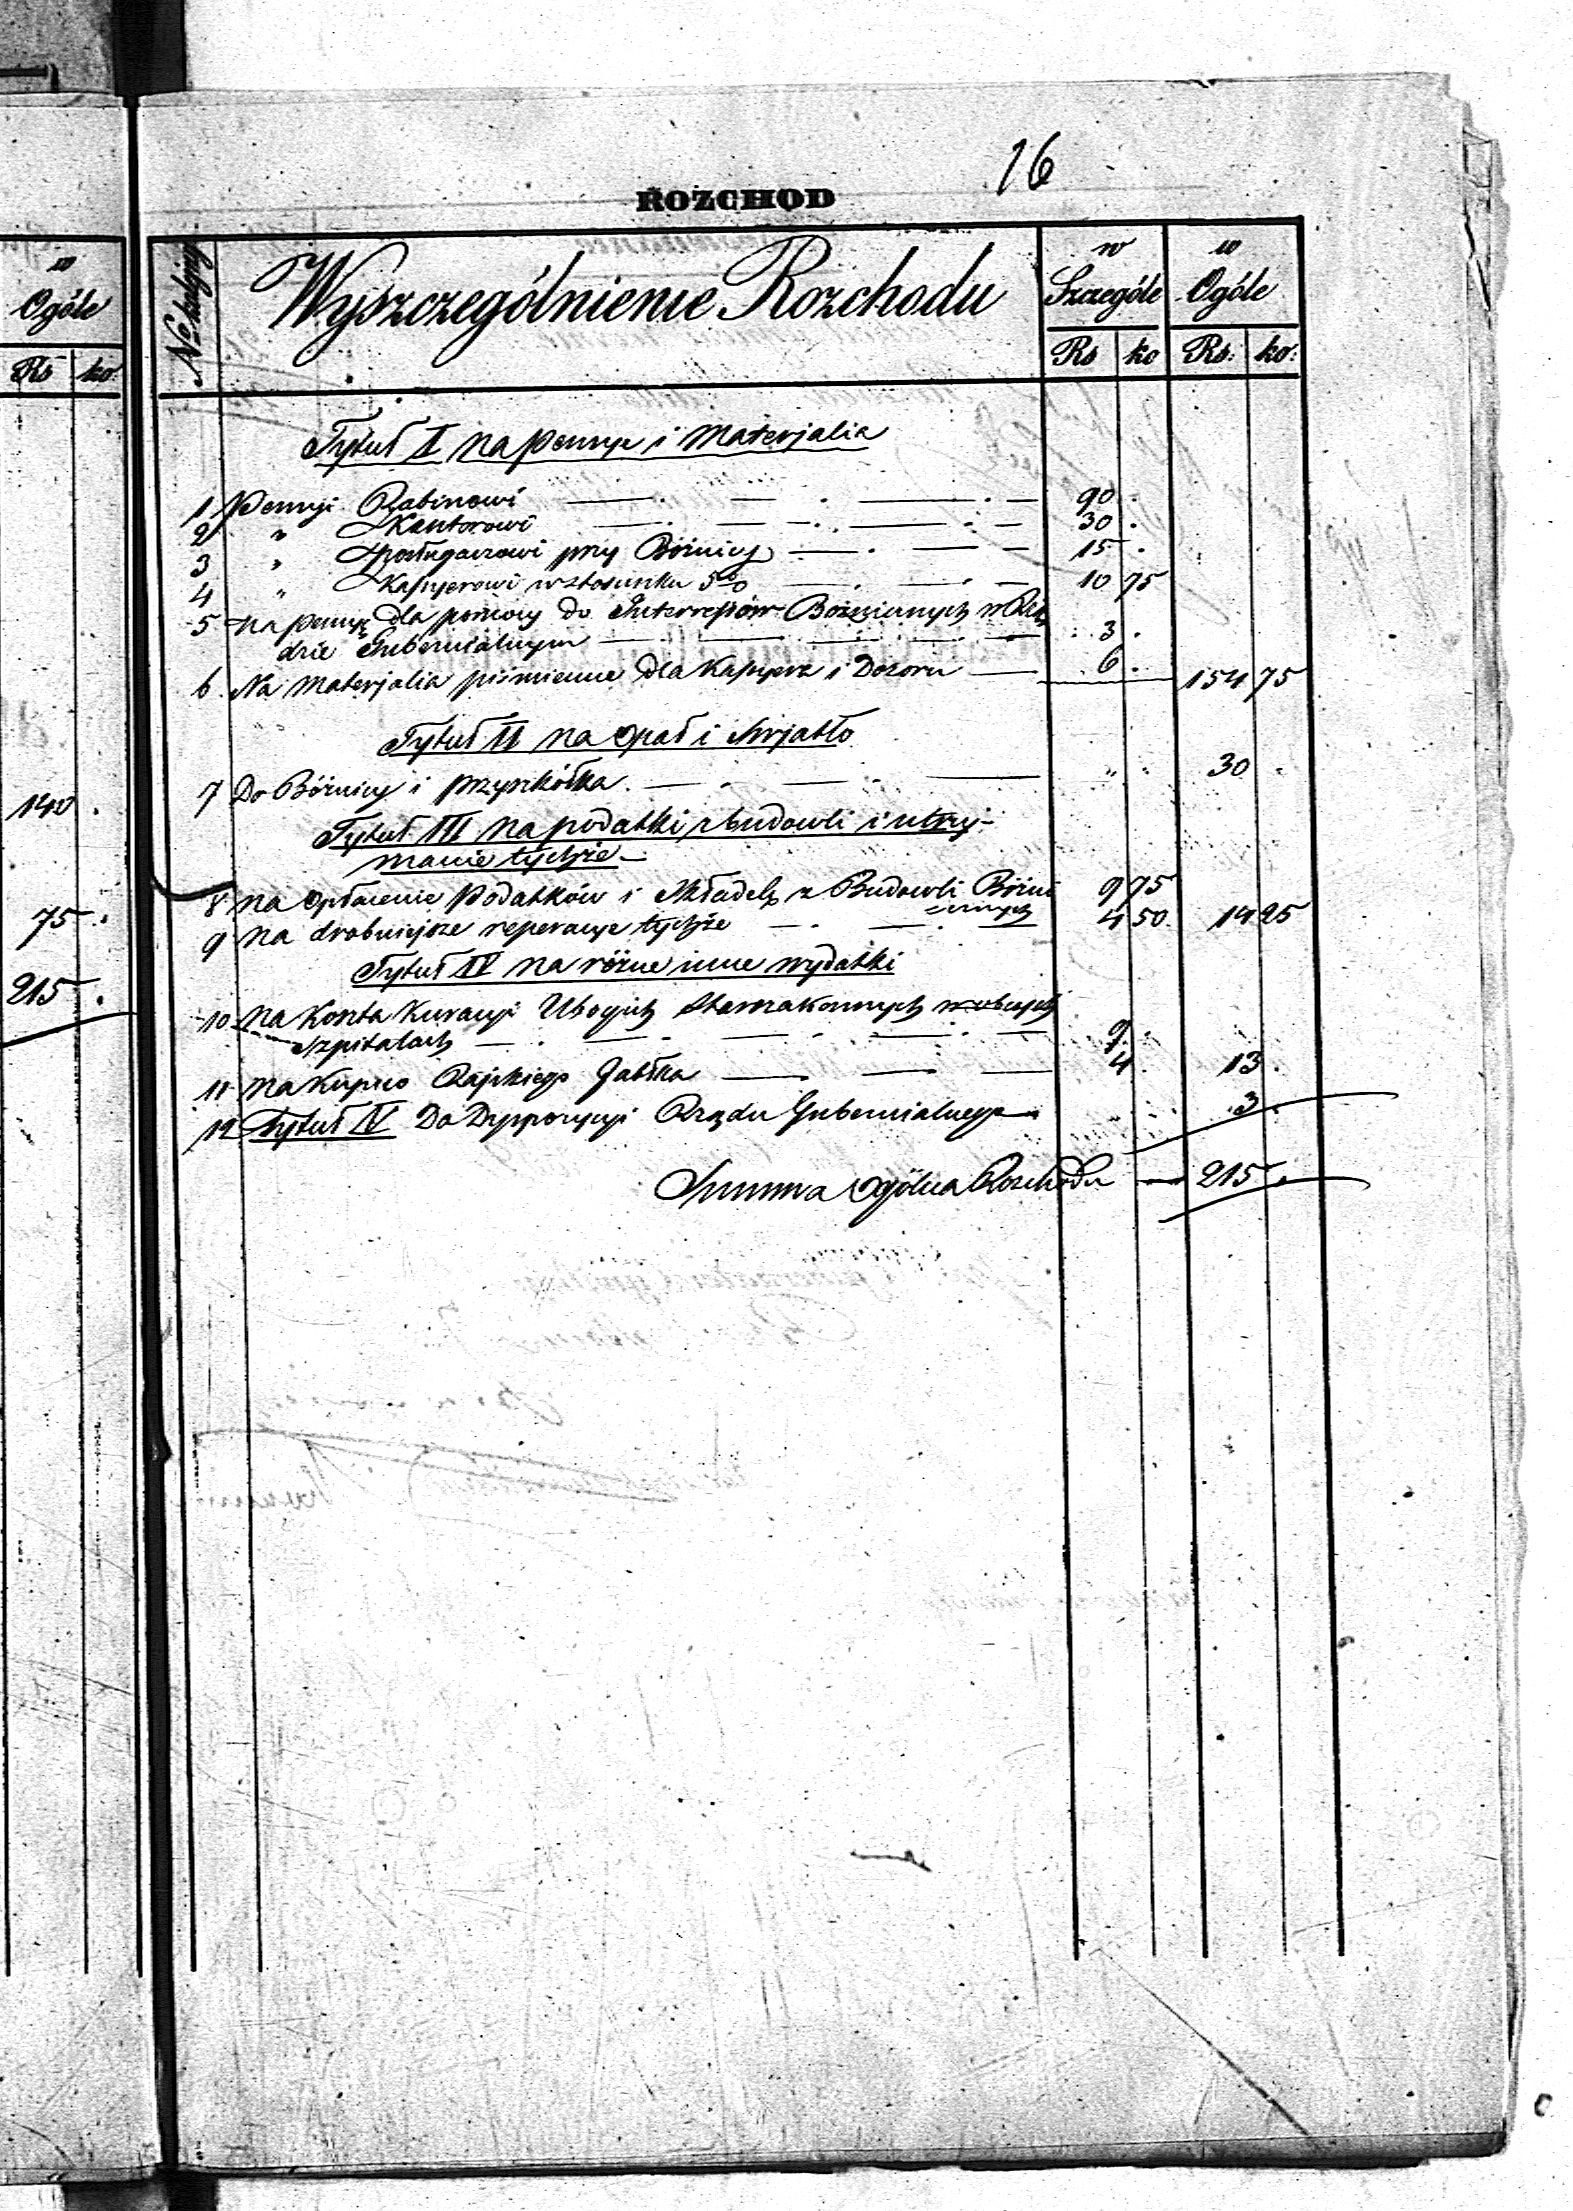 16
ROZCHOD
w
Ogóle
Rs ko:
140 .
75 .
215 .
No kolejny
Wyszczególnienie Rozchodu
w Szczególe
w Ogóle
Rs ko Rs: ko:
Tytuł I na pensye i Materjalia
1 Pensyi Rabinowi 90 .
2 " Kantorowi 30 .
3 " Posługaczowi przy Bóżnicy 15 .
4 " Kassyerowi w stosunku 5% 10 75
5 Na pensyę dla pomocy do Interessów Bóżnicznych w Rzą
dzie Gubernialnym 3 .
6. Na Materjalia piśmienne dla Kassyera i Dozoru 6 . 154 75
Tytuł II na opał i Swjatło
7 Do Bóźnicy i przyszkółka. " " 30 .
Tytuł III na podatki z budowli i utrzy-
manie tychże
8 Na opłacenie Podatków i Składek z Budowli Bóżni 9 75
cznych
9 Na drobniejsze reperacye tychże 4 50 14 25
Tytuł IV na różne inne wydatki
10 Na Koszta Kuracyi Ubogich Starozakonnych w obcych
Szpitalach 9 .
11 Na Kupno Rajskiego Jabłka 4 . 13 .
12 Tytuł IV Do Dyspozycyi Rządu Gubernialnego " " 3 .
Summa Ogólna Rozchodu 215 .